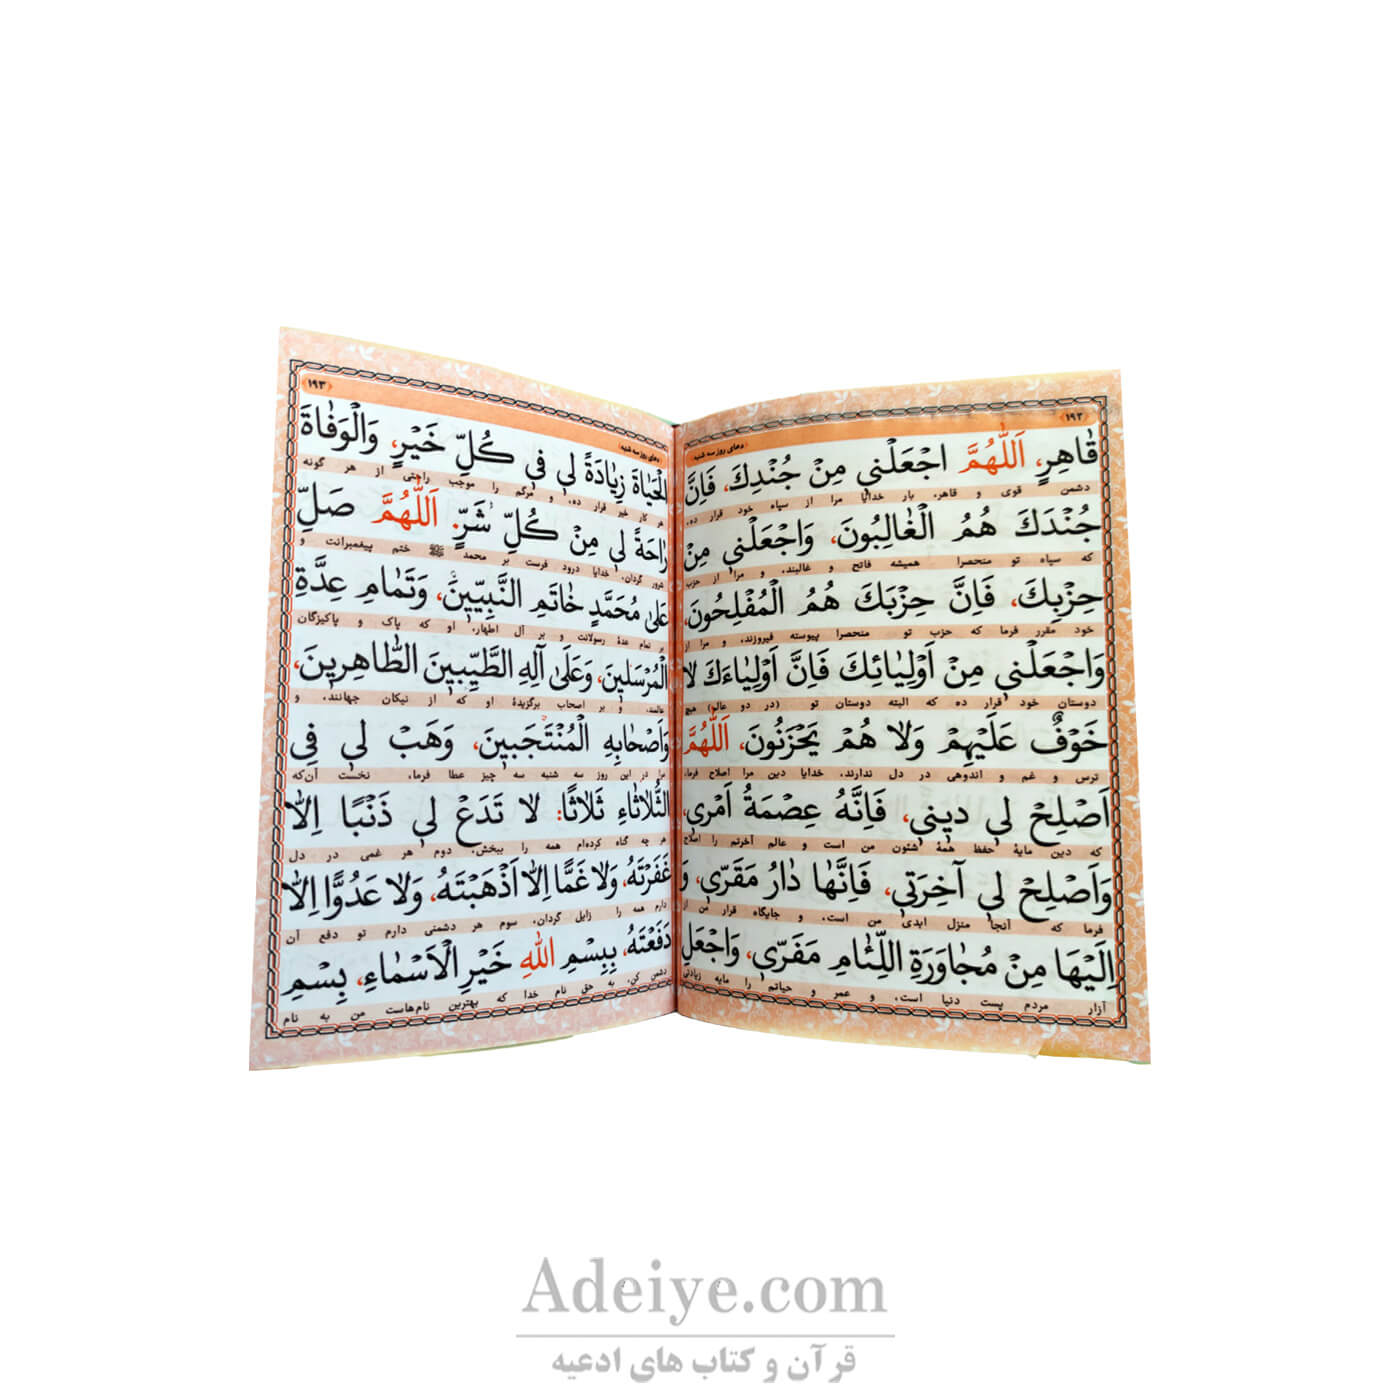 ﴿۱۹۲﴾
﴿دعای روز سه شنبه﴾
قٰاهِرٍ، اَللّٰهُمَّ اجْعَلْنی مِنْ جُنْدِكَ، فَاِنَّ
دشمن قوی و قاهر. بار خدایا مرا از سپاه خود قرار ده،
جُنْدَكَ هُمُ الْغٰالِبُونَ، وَاجْعَلْنی مِنْ
که سپاه تو منحصرا همیشه فاتح و غالبند. و مرا از حزب
حِزْبِكَ، فَاِنَّ حِزْبَكَ هُمُ الْمُفْلِحُونَ،
خود مقرر فرما که حزب تو منحصرا پیوسته فیروزند. و مرا از
وَاجْعَلْنی مِنْ اَوْلِیٰائِكَ فَاِنَّ اَوْلِیٰاءَكَ لا
دوستان خود قرار ده که البته دوستان تو (در دو عالم) هیچ
خَوْفٌ عَلَیْهِمْ وَلا هُمْ یَحْزَنُونَ، اَللّٰهُمَّ
ترس و غم و اندوهی در دل ندارند. خدایا دین مرا اصلاح فرما،
اَصْلِحْ لی دینی، فَاِنَّهُ عِصْمَةُ اَمْری،
که دین مایهٔ حفظ همهٔ شئون من است و عالم آخرتم را اصلاح
وَاَصْلِحْ لی آخِرَتی، فَاِنَّهٰا دٰارُ مَقَرّی، وَ
فرما که آنجا منزل ابدی من است. و جایگاه قرار من از
اِلَیْهٰا مِنْ مُجٰاوَرَةِ اللِّئٰامِ مَفَرّی، وَاجْعَلِ
آزار مردم پست دنیا است. و عمر و حیاتم را مایه زیادتی
﴿۱۹۳﴾
﴿دعای روز سه شنبه﴾
الْحَیٰاةَ زِیٰادَةً لی فی كُلِّ خَیْرٍ، وَالْوَفٰاةَ
هر کار خیر قرار ده، و مرگم را موجب راحتی از هر گونه
رٰاحَةً لی مِنْ كُلِّ شَرٍّ. اَللّٰهُمَّ صَلِّ
شرور گردان. خدایا درود فرست بر محمد ﷺ ختم پیغمبرانت و
عَلیٰ مُحَمَّدٍ خٰاتَمِ النَّبِیّینَ، وَتَمٰامِ عِدَّةِ
بر تمام عدهٔ رسولانت و بر آل اطهار، او که پاک و پاکیزگان
الْمُرْسَلینَ، وَعَلیٰ آلِهِ الطَّیِّبینَ الطّٰاهِرینَ،
عالمند. و بر اصحاب برگزیدهٔ او که از نیکان جهانند. و
وَاَصْحٰابِهِ الْمُنْتَجَبینَ، وَهَبْ لی فِی
مرا در این روز سه شنبه سه چیز عطا فرما. نخست آن‌که
الثُّلاثٰاءِ ثَلاثًا: لا تَدَعْ لی ذَنْبًا اِلاّٰ
هر چه گناه کرده‌ام همه را ببخش. دوم هر غمی در دل
غَفَرْتَهُ، وَلا غَمًّا اِلاّٰ اَذْهَبْتَهُ، وَلا عَدُوًّا اِلاّٰ
دارم همه را زایل گردان. سوم هر دشمنی دارم تو دفع آن
دَفَعْتَهُ، بِبِسْمِ اللّٰهِ خَیْرِ الْاَسْمٰاءِ، بِسْمِ
دشمن کن. به حق نام خدا که بهترین نام‌هاست من به نام
Adeiye.com
قرآن و کتاب های ادعیه